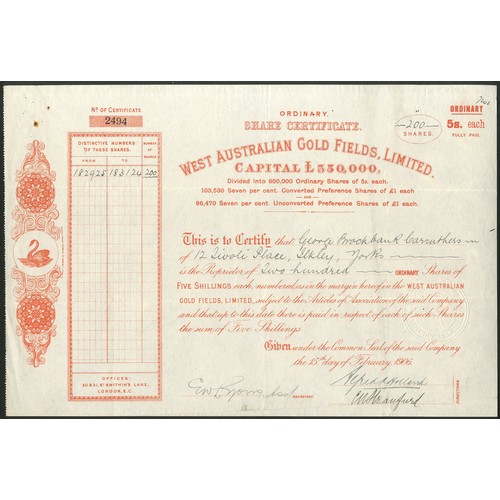 Nº OF CERTIFICATE.
2494
DISTINCTIVE NUMBERS OF THESE SHARES.
NUMBER OF SHARES
FROM TO
182925 183124 200
OFFICES:
30 & 31, Sᵗ SWITHIN'S LANE,
LONDON, E.C.
ORDINARY
SHARE CERTIFICATE.
200
SHARES.
ORDINARY
5s. each
FULLY PAID.
WEST AUSTRALIAN GOLD FIELDS, LIMITED.
CAPITAL £550,000,
Divided into 800,000 Ordinary Shares of 5s. each.
103,530 Seven per cent. Converted Preference Shares of £1 each
AND
96,470 Seven per cent. Unconverted Preference Shares of £1 each.
This is to Certify that George Brockbank Carruthers
of 12 Tivoli Place, Ilkley, Yorks
is the Proprietor of Two hundred ORDINARY Shares of
FIVE SHILLINGS each, numbered as in the margin hereof in the WEST AUSTRALIAN
GOLD FIELDS, LIMITED, subject to the Articles of Association of the said Company
and that up to this date there is paid in respect of each of such Shares
the sum of Five Shillings.
Given under the Common Seal of the said Company
the 15th day of February, 1906.
SECRETARY
DIRECTORS